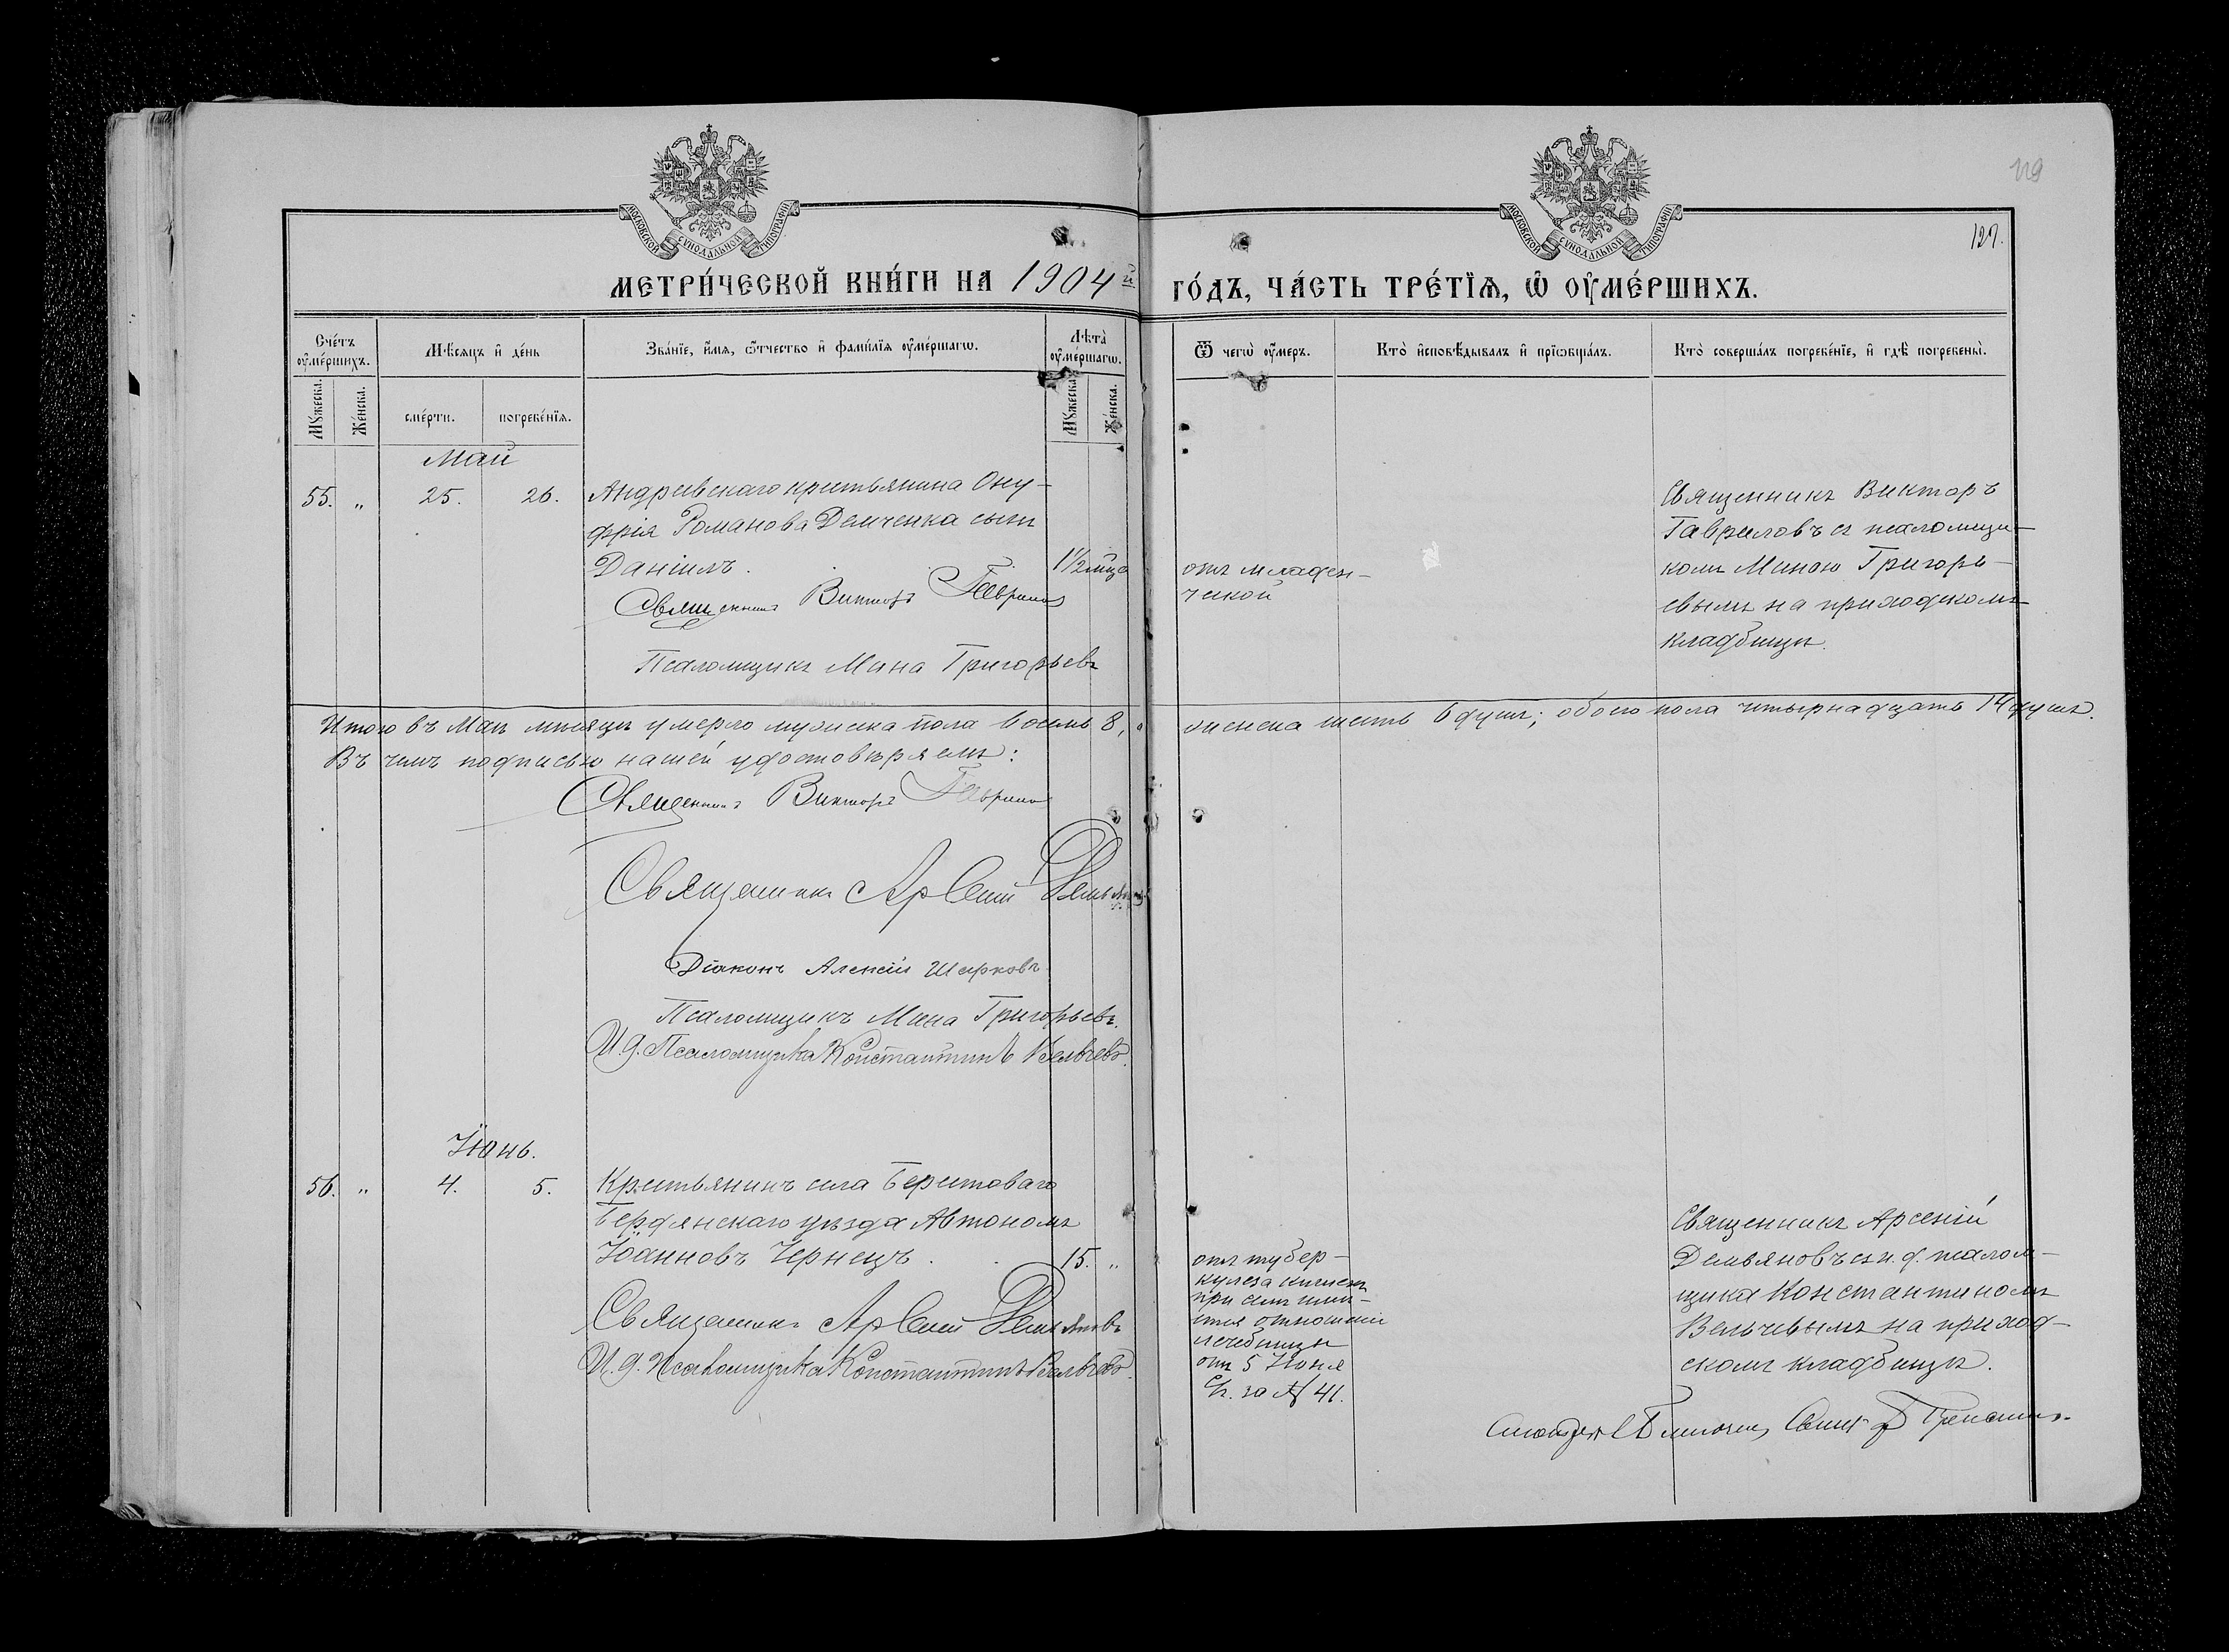 119
127.
МОСКОВСКОЙ СѴНОДАЛЬНОЙ ТИПОГРАФІИ
МОСКОВСКОЙ СѴНОДАЛЬНОЙ ТИПОГРАФІИ
МЕТРИ́ЧЕСКОЙ КНИ́ГИ НА 1904й
ГО́ДЪ, ЧА́СТЬ ТРЕ́ТЇѦ, Ѽ ОУ҆МЕ́РШИХЪ.
Сче́тъ оу҆ме́ршихъ.
Мѣ́сяцъ и҆ де́нь
Зва́нїе, и҆́мя, ѻ҆́тчество и҆ фами́лїя оу҆ме́ршагѡ.
Лѣ́та оу҆ме́ршагѡ.
Ѿ чегѡ̀ оу҆́меръ.
Кто̀ и҆сповѣ́дывалъ и҆ прїѡбща́лъ.
Кто̀ соверша́лъ погребе́нїе, и҆ гдѣ̀ погребены̀.
Мꙋ́жеска.
Же́нска.
сме́рти.
погребе́нїя.
Мꙋ́жеска.
Же́нска.
Май
55. „ 25. 26. Андреевскаго крестьянина Ону-
фрія Романова Демченка сынъ
Даніилъ. 1½ мца
Священникъ Викторъ Гавриловъ
Псаломщикъ Мина Григорьевъ
отъ младен-
ческой
Священникъ Викторъ
Гавриловъ съ псаломщи-
комъ Миною Григорь-
евымъ на приходскомъ
кладбищѣ.
Итого въ Маѣ мѣсяцѣ умерло мужеска пола восемь 8, женска шесть 6 душъ; обоего пола четырнадцать 14 душъ.
Въ чемъ подписью нашей удостовѣряемъ:
Священникъ Викторъ Гавриловъ
Священникъ Арсеній Демьяновъ
Діаконъ Алексій Шарковъ
Псаломщикъ Мина Григорьевъ.
И. д. Псаломщика Константинъ Вельчевъ.
Іюнь.
56. „ 4. 5. Крестьянинъ села Берестоваго
Бердянскаго уѣзда Автономъ
Іоанновъ Чернецъ. 15. „
Священникъ Арсеній Демьяновъ
И. д. Псаломщика Константинъ Вельчевъ.
отъ тубер-
кулеза кишекъ
при семъ
отношеніе
лечебницы
отъ 5 Іюня
за № 41.
Священникъ Арсеній
Демьяновъ съ и. д. псалом-
щика Константиномъ
Вельчевымъ на приход-
скомъ кладбищѣ.